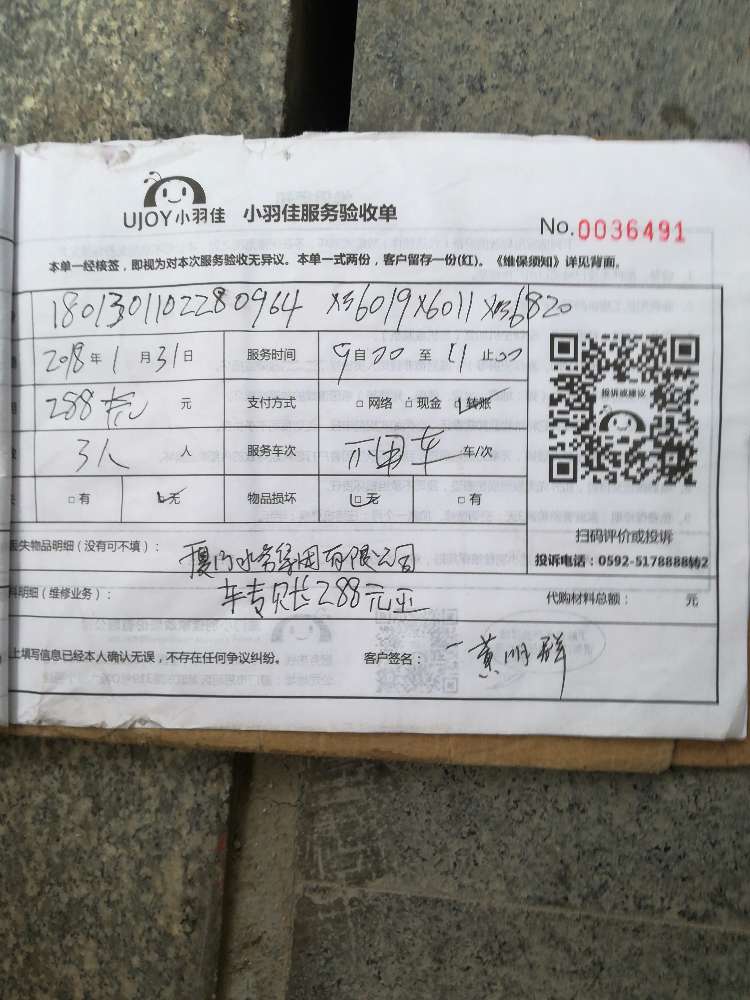 UJOY小羽佳 小羽佳服务验收单
No.0036491
本单一经核签,即视为对本次服务验收无异议。本单一式两份,客户留存一份(红)。《维保须知》详见背面。
1801301102280964 X6019X6011 6820
2018年1月31日 服务时间 9自00至11止00
288元 元 支付方式 □网络 □现金 □转账
投诉或建议
3人 人 服务车次 不用车 车/次
□有 □无 物品损坏 □无 □有
扫码评价或投诉
丢失物品明细(没有可不填): 厦门水务集团有限公司
投诉电话:0592-5178888转2
料明细(维修业务): 288元正 代购材料总额: 元
上填写信息已经本人确认无误,不存在任何争议纠纷。 客户签名: 黄明群